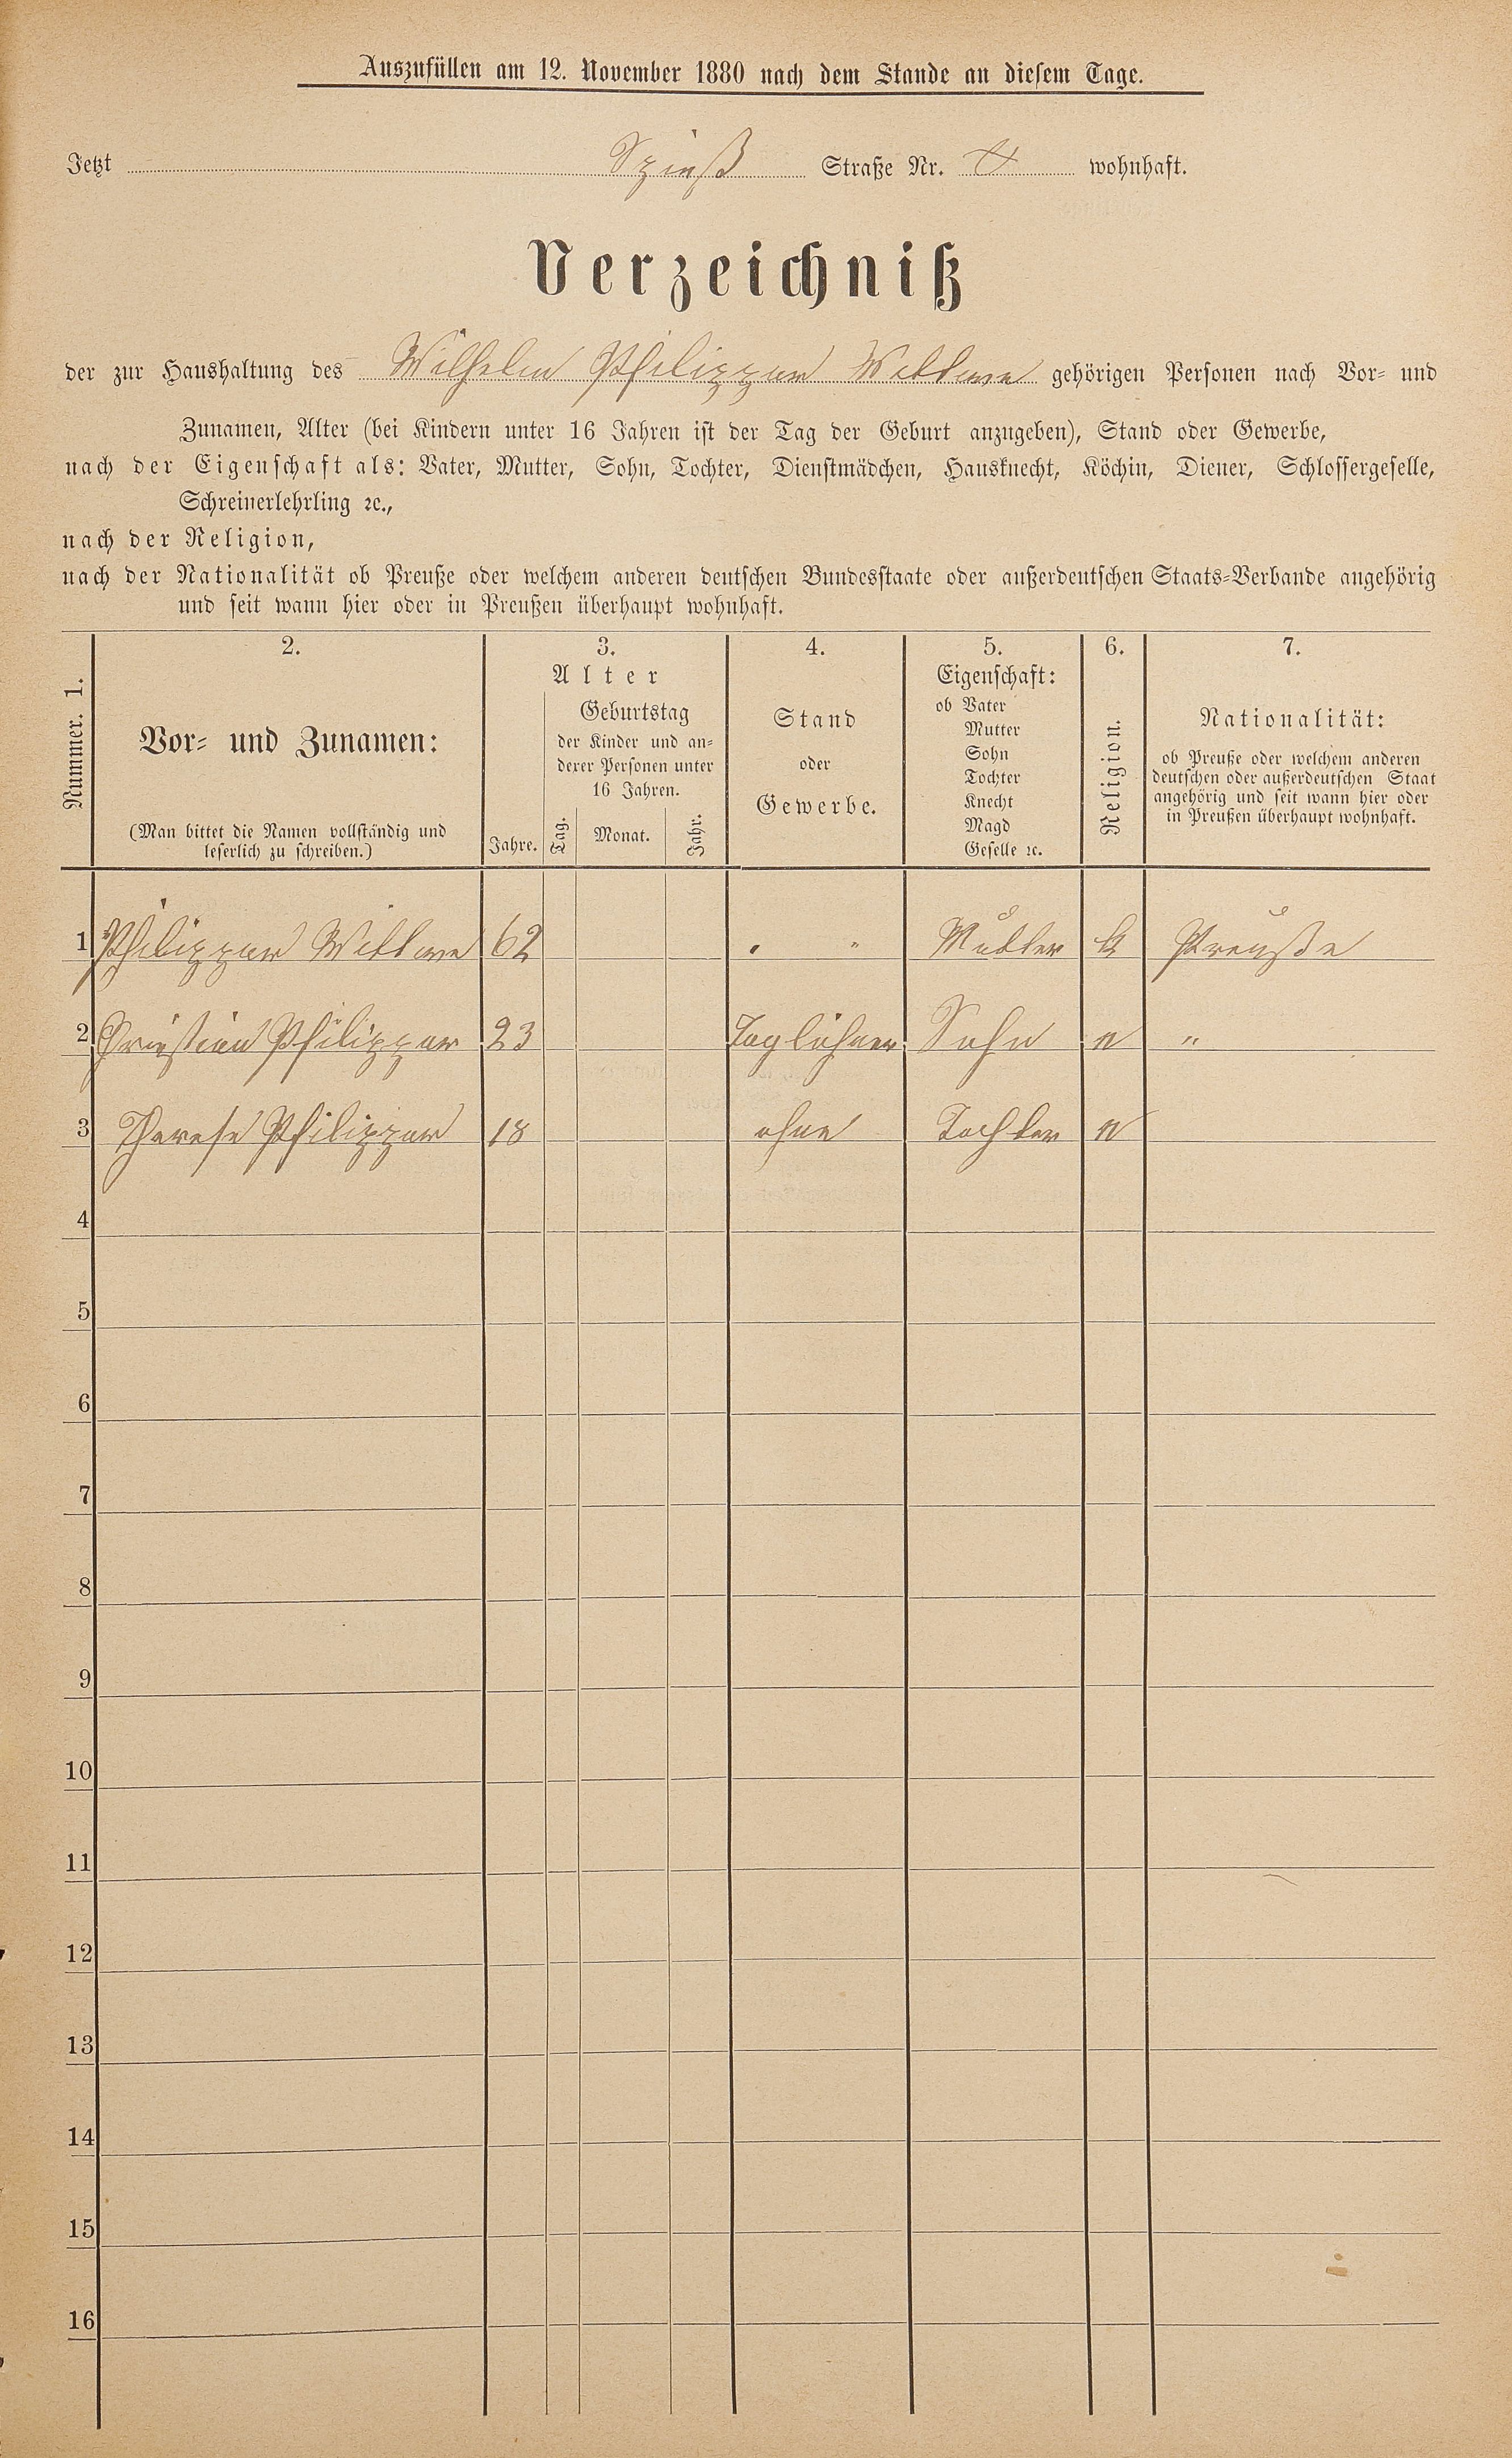 Auszufüllen am 12. November 1880 nach dem Stande an diesem Tage.
Jetzt Spieß Straße Nr. wohnhaft.
Verzeichniß
der zur Haushaltung des Wilhelm Philippar Wittwe gehörigen Personen nach Vor- und
Zunamen, Alter (bei Kindern unter 16 Jahren ist der Tag der Geburt anzugeben), Stand oder Gewerbe,
nach der Eigenschaft als: Vater, Mutter, Sohn, Tochter, Dienstmädchen, Hausknecht, Köchin, Diener, Schlossergeselle,
Schreinerlehrling ꝛc.,
nach der Religion,
nach der Nationalität ob Preuße oder welchem anderen deutschen Bundesstaate oder außerdeutschen Staats-Verbande angehörig
und seit wann hier oder in Preußen überhaupt wohnhaft.
Nummer. 1.
2.
Vor- und Zunamen:
(Man bittet die Namen vollständig und
leserlich zu schreiben.)
3.
Alter
Jahre.
Geburtstag
der Kinder und an-
derer Personen unter
16 Jahren.
Tag. Monat. Jahr.
4.
Stand
oder
Gewerbe.
5.
Eigenschaft:
ob Vater
Mutter
Sohn
Tochter
Knecht
Magd
Geselle ꝛc.
6.
Religion.
7.
Nationalität:
ob Preuße oder welchem anderen
deutschen oder außerdeutschen Staat
angehörig und seit wann hier oder
in Preußen überhaupt wohnhaft.
1 Philippar Wittwe 62 " " Mutter k Preuße
2 Christian Philippar 23 Taglöhner Sohn "
3 Therese Philippar 18 ohne Tochter
4
5
6
7
8
9
10
11
12
13
14
15
16